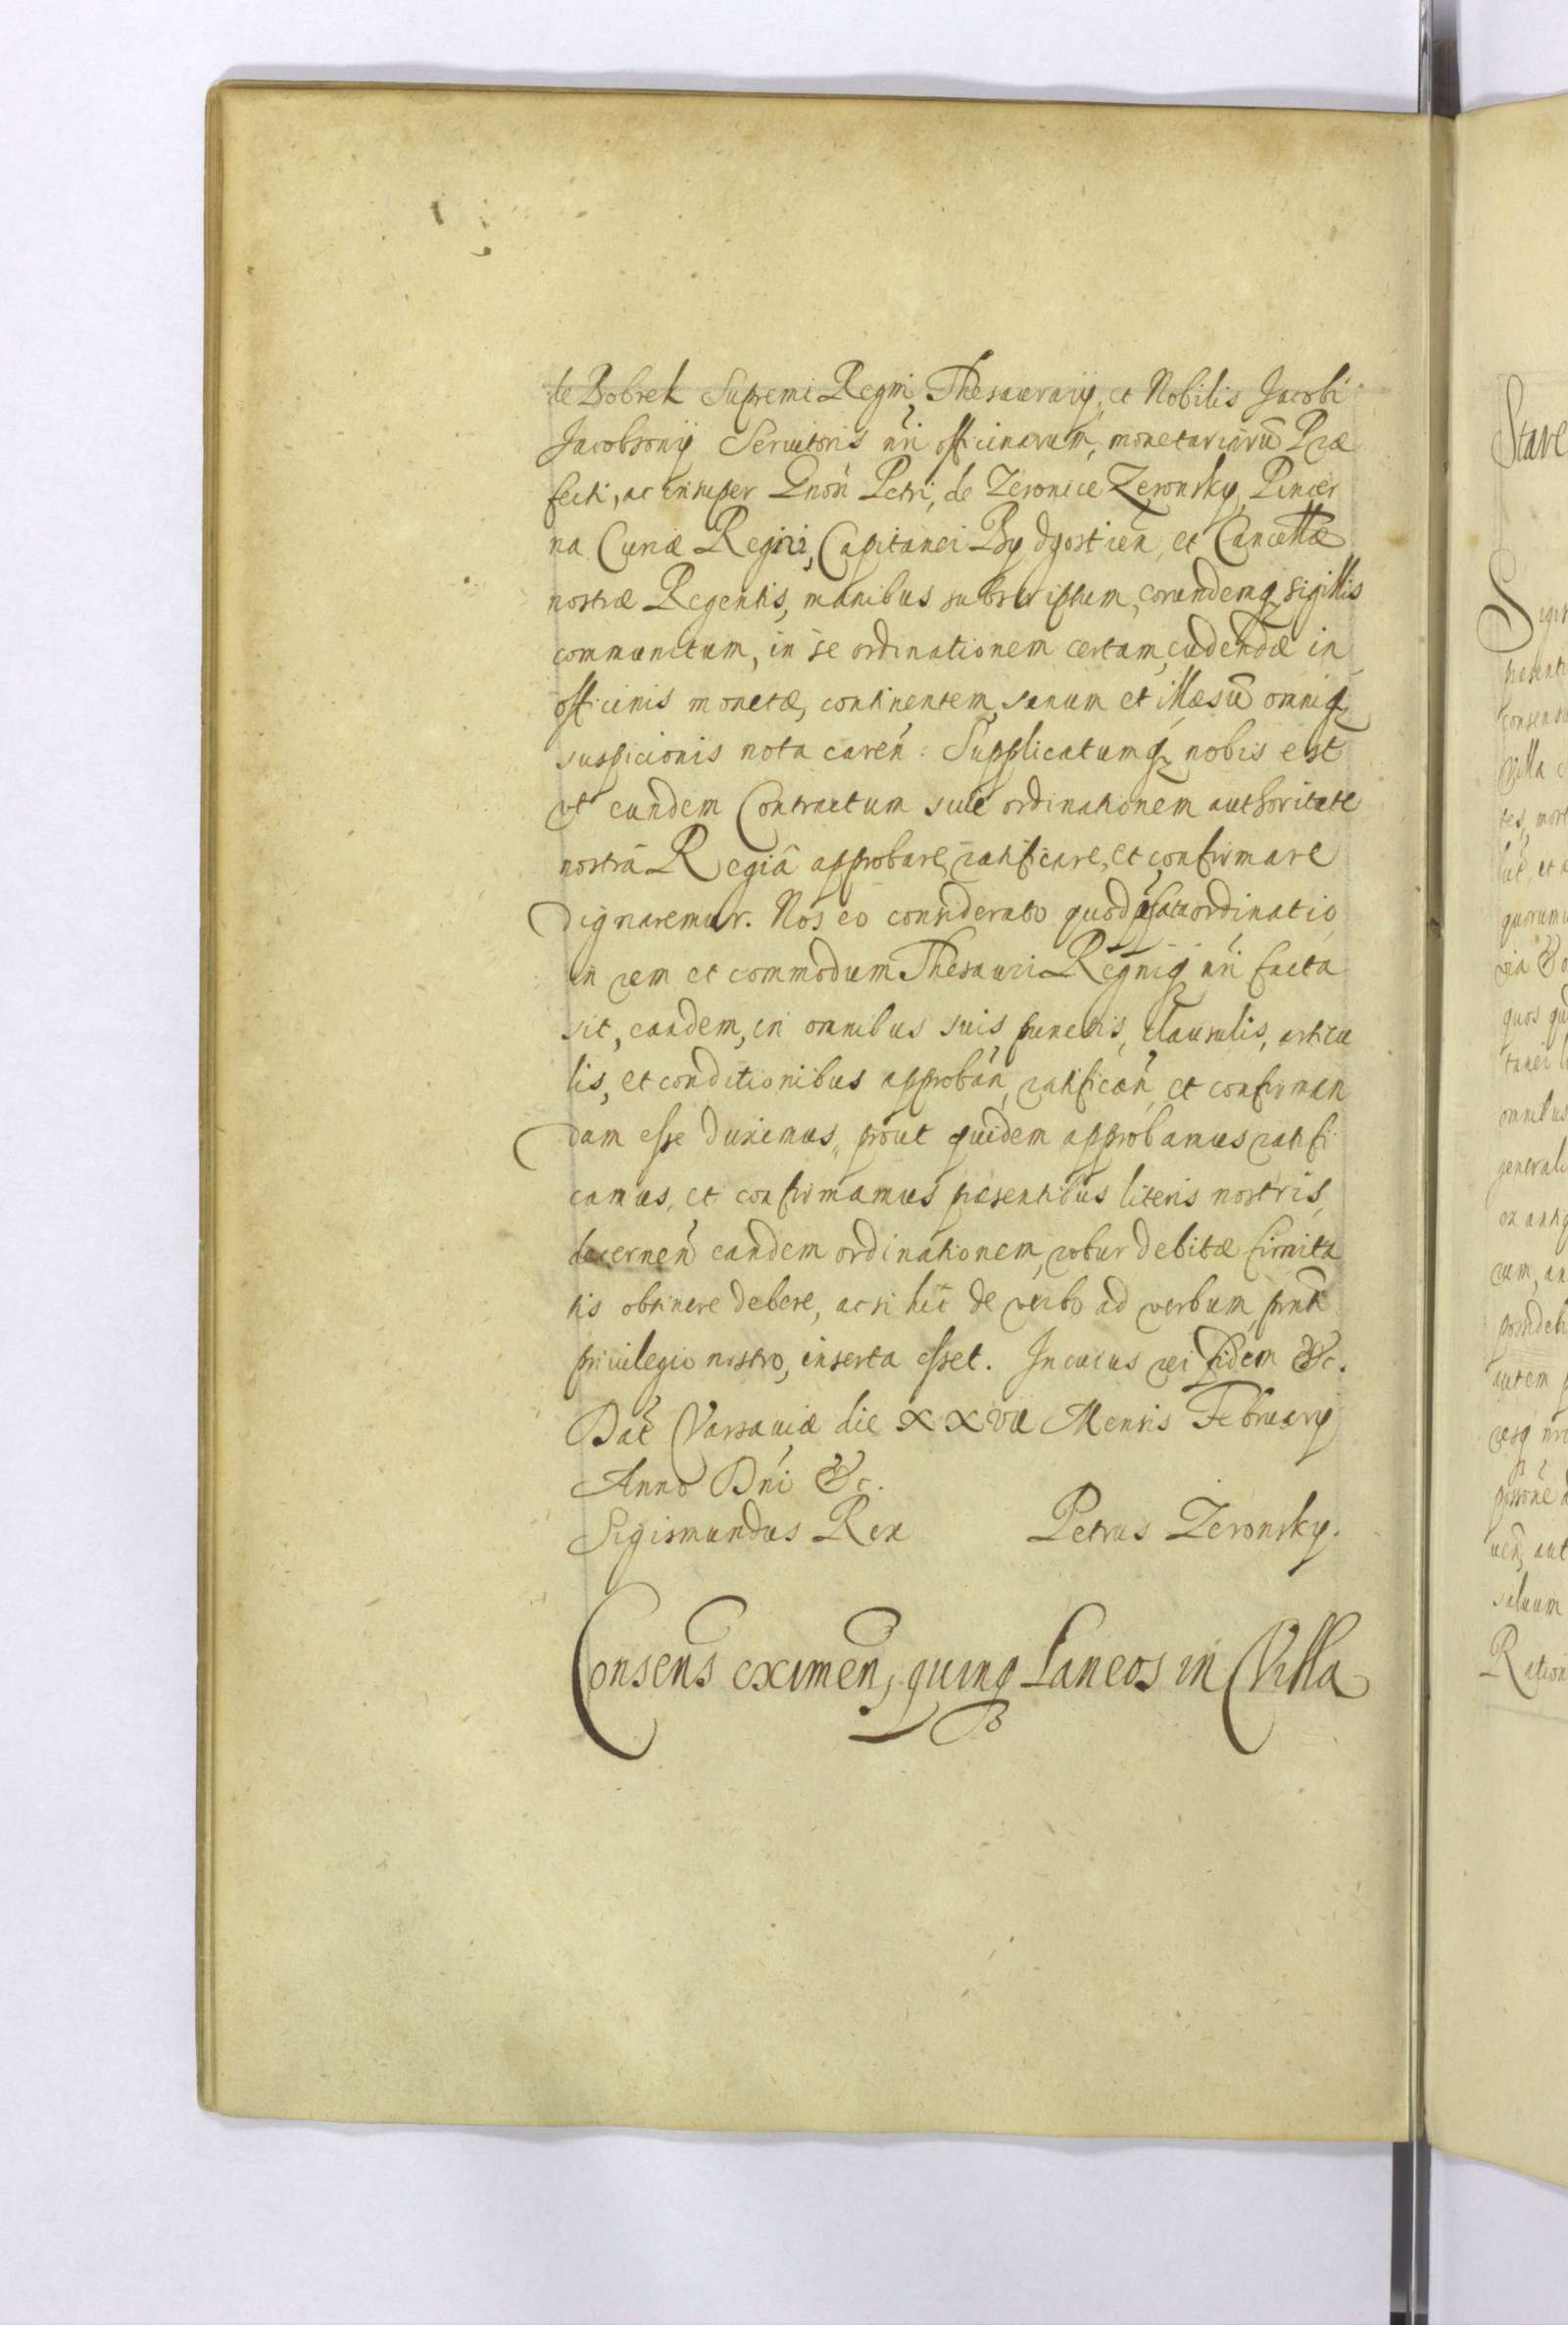 de Bobrek Supremi Regni Thesaurarij, et Nobilis Jacobi
Jacobsonij Seruitoris nri officinarum, monetariarū Præ
fecti, ac insuper Gnosi Petri, de Zeronice Zeronsky, Pincer
na Curiæ Regni, Capitanei Bydgostien, et Cancellæ
nostræ Regentis, manibus subscriptum, eorundemq sigillis
communitum, in se ordinationem certam, cudendæ in
officinis monetæ, continentem, sanum et illæsū omniq
suspicionis nota caren: Supplicatumq nobis est
vt eundem Contractum siue ordinationem authoritate
nostrâ Regiâ approbare, ratificare, et confirmare
dignaremur. Nos eo considerato quod pfata ordinatio
in rem et commodum Thesauri Regniq nri facta
sit, eandem, in omnibus suis punctis, clausulis, articu
lis, et conditionibus approban, ratifican, et confirman
dam esse duximus, prout quidem approbamus ratifi
camus, et confirmamus præsentibus literis nostris,
decernen eandem ordinationem, robur debitæ firmita
tis obtinere debere, ac si hîc de verbo ad verbum, pnti
priuilegio nostro, inserta esset. In cuius rei fidem &c.
Dat Varsauiæ die XXVII Mensis February
Anno Dni &c.
Sigismundus Rex Petrus Zeronsky.
Consens eximen, quinq Laneos in Villa
Stare